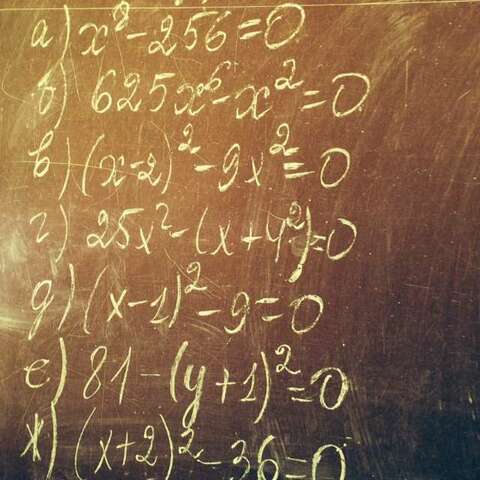 а) x² - 256 = 0
б) 625x⁶ - x² = 0
в) (x-2)² - 9x² = 0
г) 25x² - (x+4²) = 0
д) (x-1)² - 9 = 0
е) 81 - (y+1)² = 0
ж) (x+2)² - 36 = 0